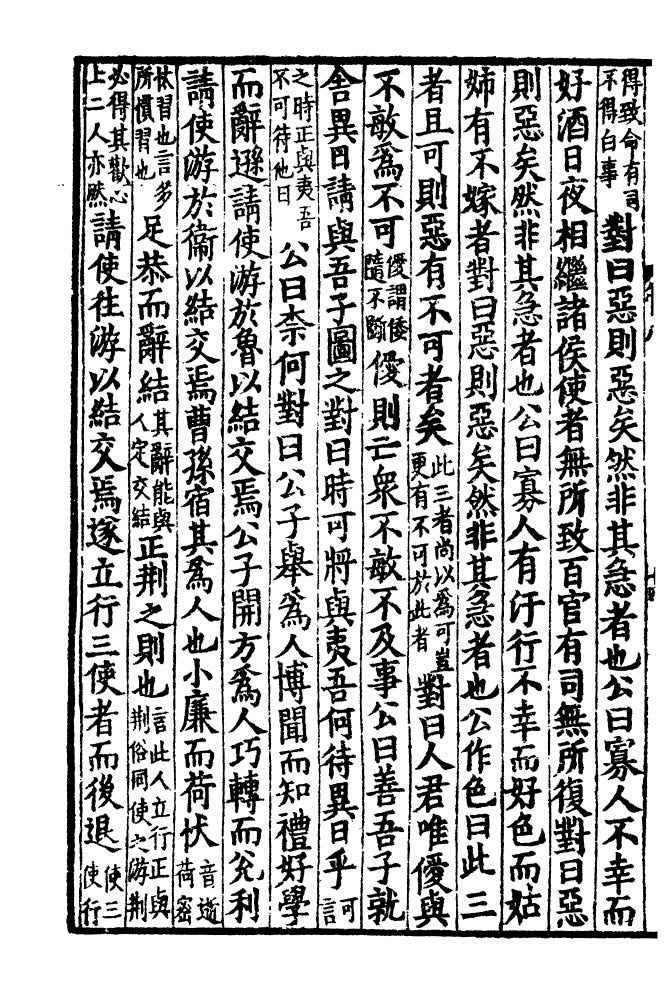 得致命有司不得白事對曰惡則惡矣然非其急者也公曰寡人不幸而
好酒日夜相繼諸侯使者無所致百官有司無所復對曰惡
則惡矣然非其急者也公曰寡人有汙行不幸而好色而姑
姉有不嫁者對曰惡則惡矣然非其急者也公作色曰此三
者且可則惡有不可者矣此三者尚以爲可豈更有不可於此者對曰人君唯優與
不敏爲不可優謂倭隨不斷優則亡衆不敏不及事公曰善吾子就
舍異日請與吾子圖之對曰時可將與夷吾何待異日乎言可
之時正與夷吾不可待他日公曰柰何對曰公子舉爲人博聞而知禮好學
而辭遜請使游於魯以結交焉公子開方爲人巧轉而兊利
請使游於衞以結交焉曹孫宿其爲人也小廉而荷忕音逝荷密
忕習也言多所慣習也足恭而辭結其辭能與人定交結正荆之則也言此人立行正與荆俗同使之游荆
必得其歡心上二人亦然請使往游以結交焉遂立行三使者而後退使三使行